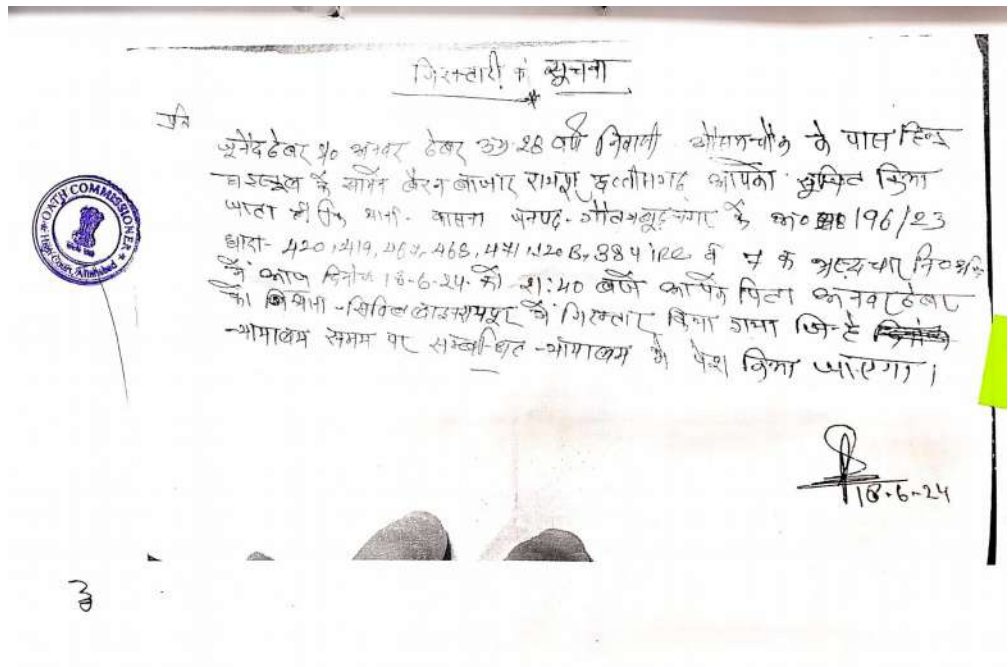 गिरफ्तारी की सूचना
प्रति
जुनैद ढेबर S/o अनवर ढेबर उम्र 28 वर्ष निवासी के पास
के सामने बैरन बाजार रायपुर छत्तीसगढ़ आपको सूचित किया
जाता है कि थाना- कासना जनपद- गौतमबुद्धनगर के अ०सं० 196/23
धारा- 420, 419, 467, 468, 471, 120B, 384 IPC व भ्रष्टचार नि० अधि०
में आज दिनांक 18-6-24 को 21:40 बजे आपके पिता अनवर ढेबर
को थाना-सिविल लाइन रायपुर से गिरफ्तार किया गया जिन्हे
न्यायालय समय पर सम्बन्धित न्यायालय मे पेश किया जाएगा।
18-6-24
OATH COMMISSIONER
High Court, Allahabad